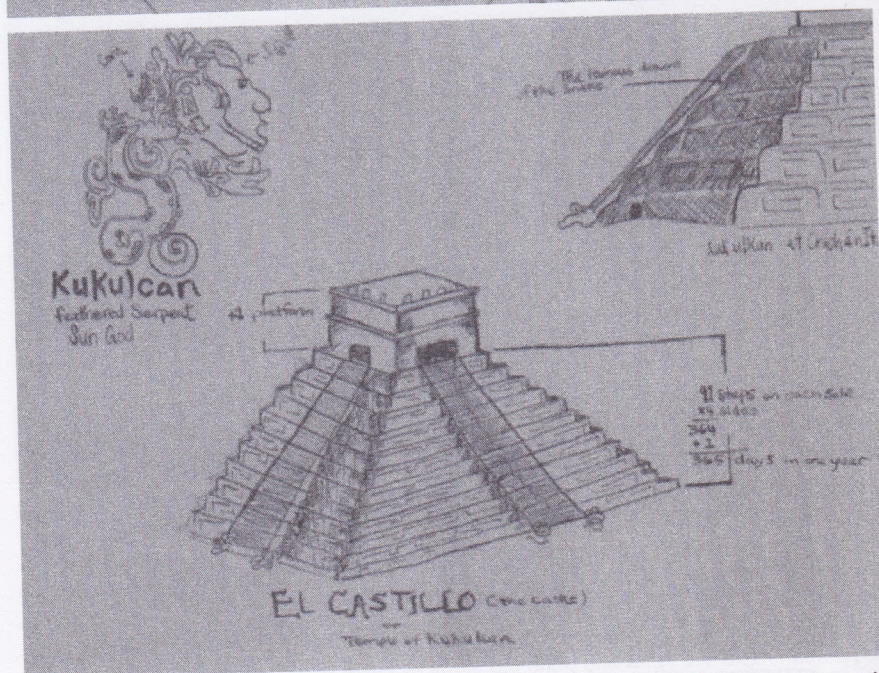 The famous
of the snake
Kukulcan
feathered Serpent
Sun God
platform
91 steps on each side
x4 sides
364
+ 1
365 days in one year
EL CASTILLO (the castle)
or
Temple of Kukulkan